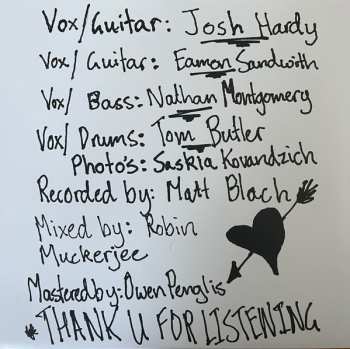 Vox/Guitar: Josh Hardy
Vox/Guitar: Eamon Sandwith
Vox/ Bass: Nathan Montgomery
Vox/ Drums: Tom Butler
Photo's: Saskia Kovandzich
Recorded by: Matt Blach
Mixed by: Robin
Muckerjee
Mastered by: Owen Penglis
* THANK U FOR LISTENING